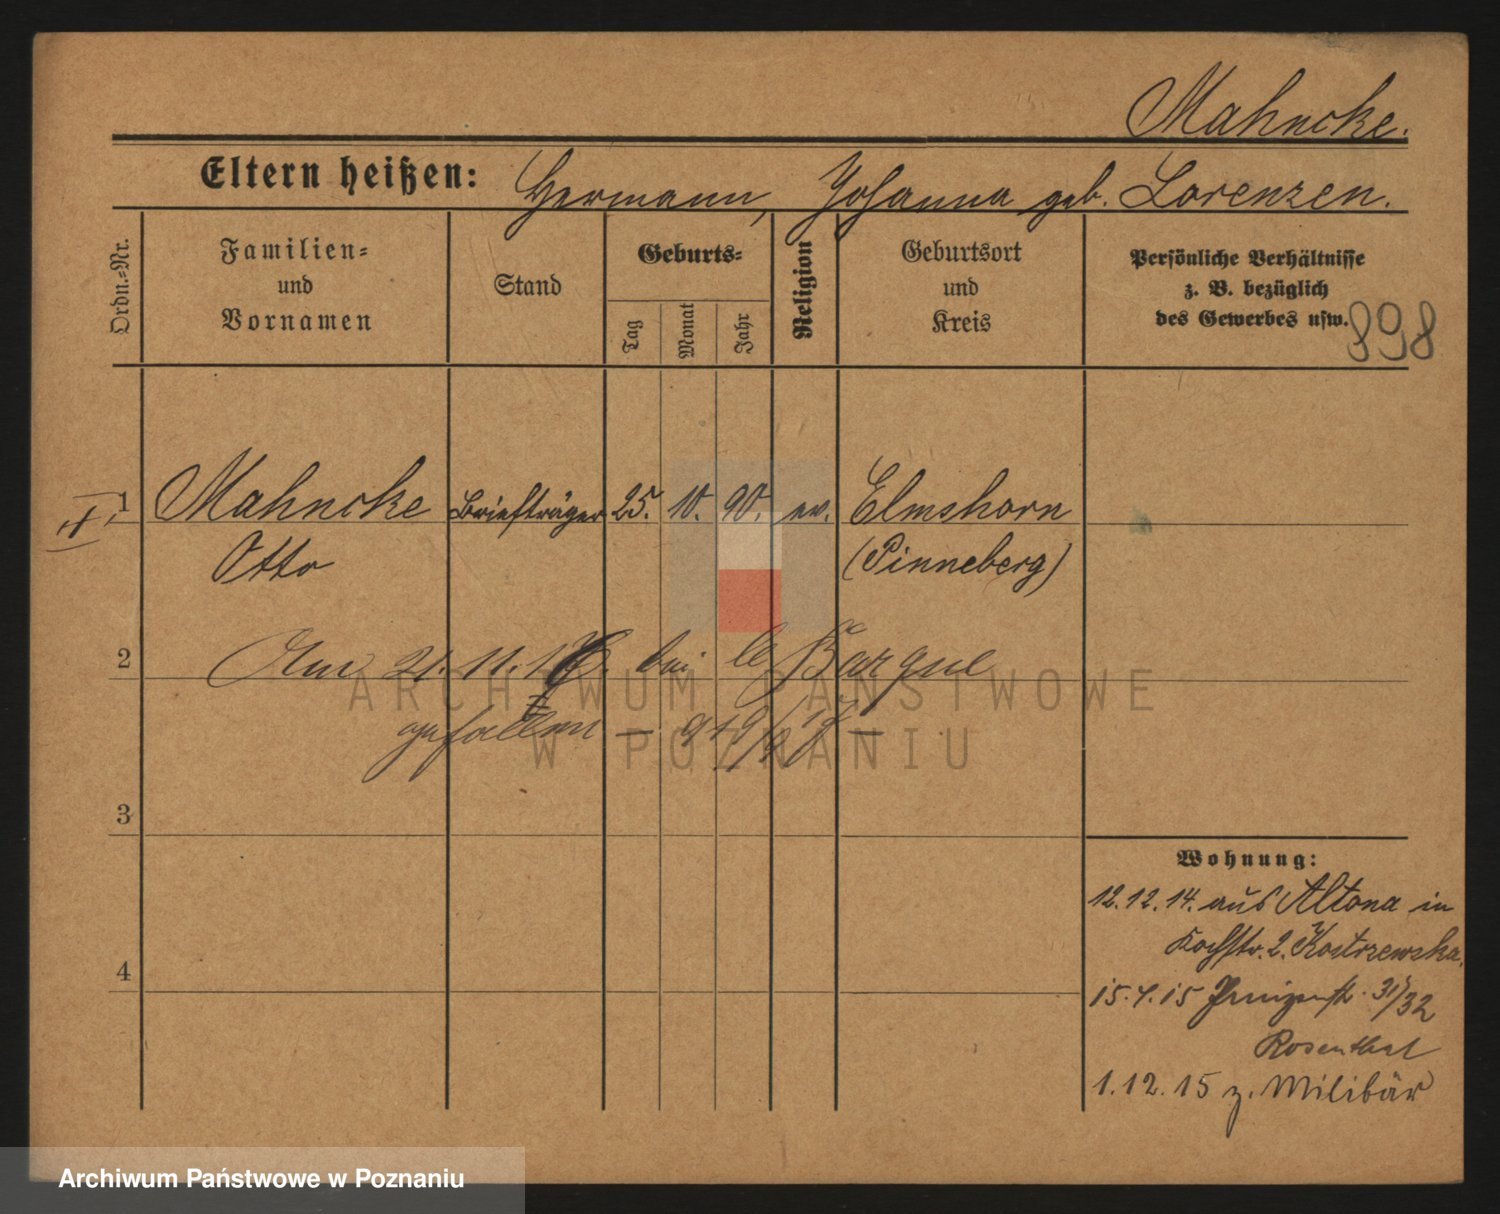 Mahncke.
Eltern heißen: Hermann, Johanna geb. Lorenzen.
Ordn.-Nr.
Familien-
und
Vornamen
Stand
Geburts-
Tag
Monat
Jahr
Religion
Geburtsort
und
Kreis
Persönliche Verhältnisse
z. B. bezüglich
des Gewerbes usw.
898
1 Mahncke Briefträger 25. 10. 90. ev. Elmshorn
Otto (Pinneberg)
2 Am 21. 11. bei le
gefallen —
3
4
Wohnung:
12.12.14. aus Altona in
Kochstr. 2. Kostrzewska.
15.4.15 31/32
Rosenthal
1.12.15 z. Militär
ARCHIWUM PAŃSTWOWE
W POZNANIU
Archiwum Państwowe w Poznaniu